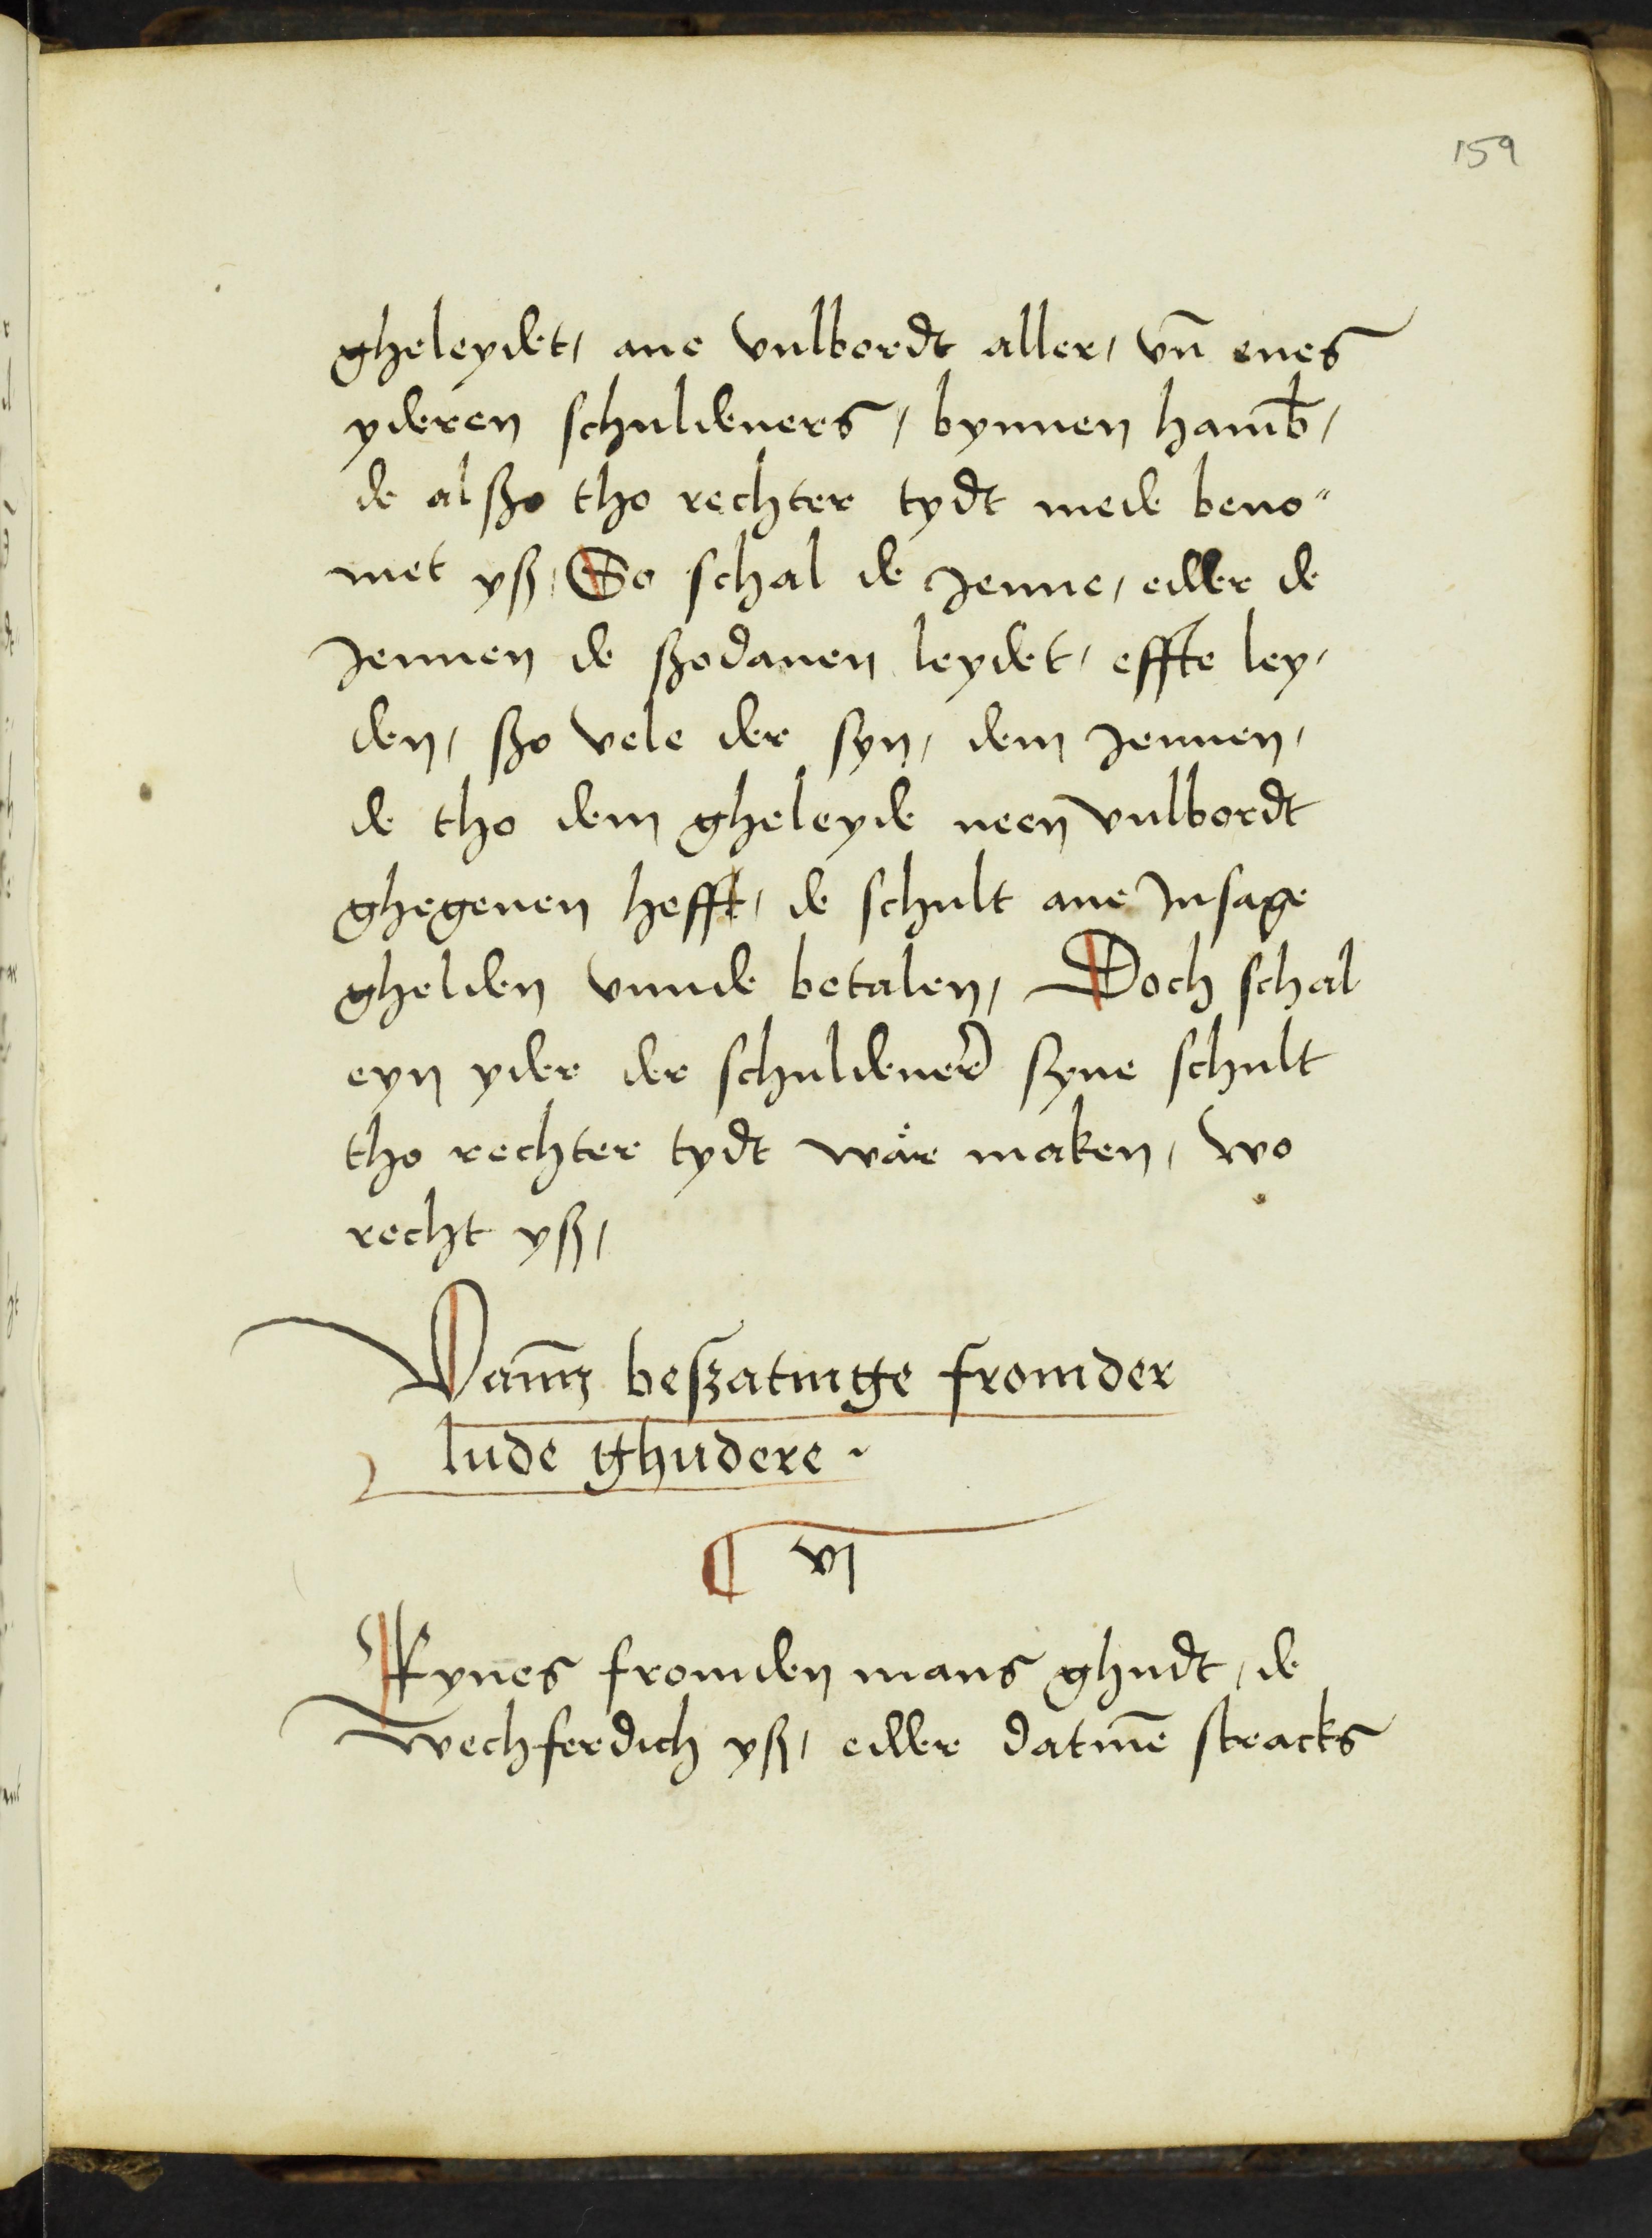 159
gheleydet, ane vulbordt aller, vn̄ enes
yderen schuldeners, bynnen hamb̄,
de alßo tho rechter tydt mede beno"
met yß, So schal de Jenne, edder de
Jennen de ßodanen leydet, effte ley,
den, ßo vele der syn, dem Jennen,
de tho dem gheleyde neen vulbordt
ghegeuen hefft, de schult ane Insage
ghelden vnnde betalen, Doch schal
eyn yder der schuldener syne schult
tho rechter tydt wår maken, wo
recht yß,
Vann beszatinge fromder
lude ghudere
¶ vj
Eynes fromden mans ghudt, de
wechferdich yß, edder datme stracks